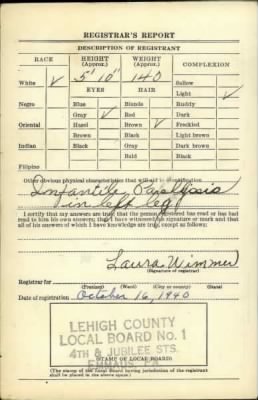 REGISTRAR'S REPORT
DESCRIPTION OF REGISTRANT
RACE HEIGHT (Approx.) WEIGHT (Approx.) COMPLEXION
5' 10" 140
White ✓ Sallow
EYES HAIR Light ✓
Negro Blue Blonde Ruddy
Gray ✓ Red Dark
Oriental Hazel Brown ✓ Freckled
Brown Black Light brown
Indian Black Gray Dark brown
Bald Black
Filipino
Other obvious physical characteristics that will aid in identification
Infantile Paralysis
in left leg
I certify that my answers are true; that the person registered has read or has had
read to him his own answers; that I have witnessed his signature or mark and that
all of his answers of which I have knowledge are true, except as follows:
Laura Wimmer
(Signature of registrar)
Registrar for
(Precinct) (Ward) (City or county) (State)
Date of registration October 16, 1940
LEHIGH COUNTY
LOCAL BOARD No. 1
4TH & JUBILEE STS.
EMMAUS, PA.
(STAMP OF LOCAL BOARD)
(The stamp of the Local Board having jurisdiction of the registrant
shall be placed in the above space.)